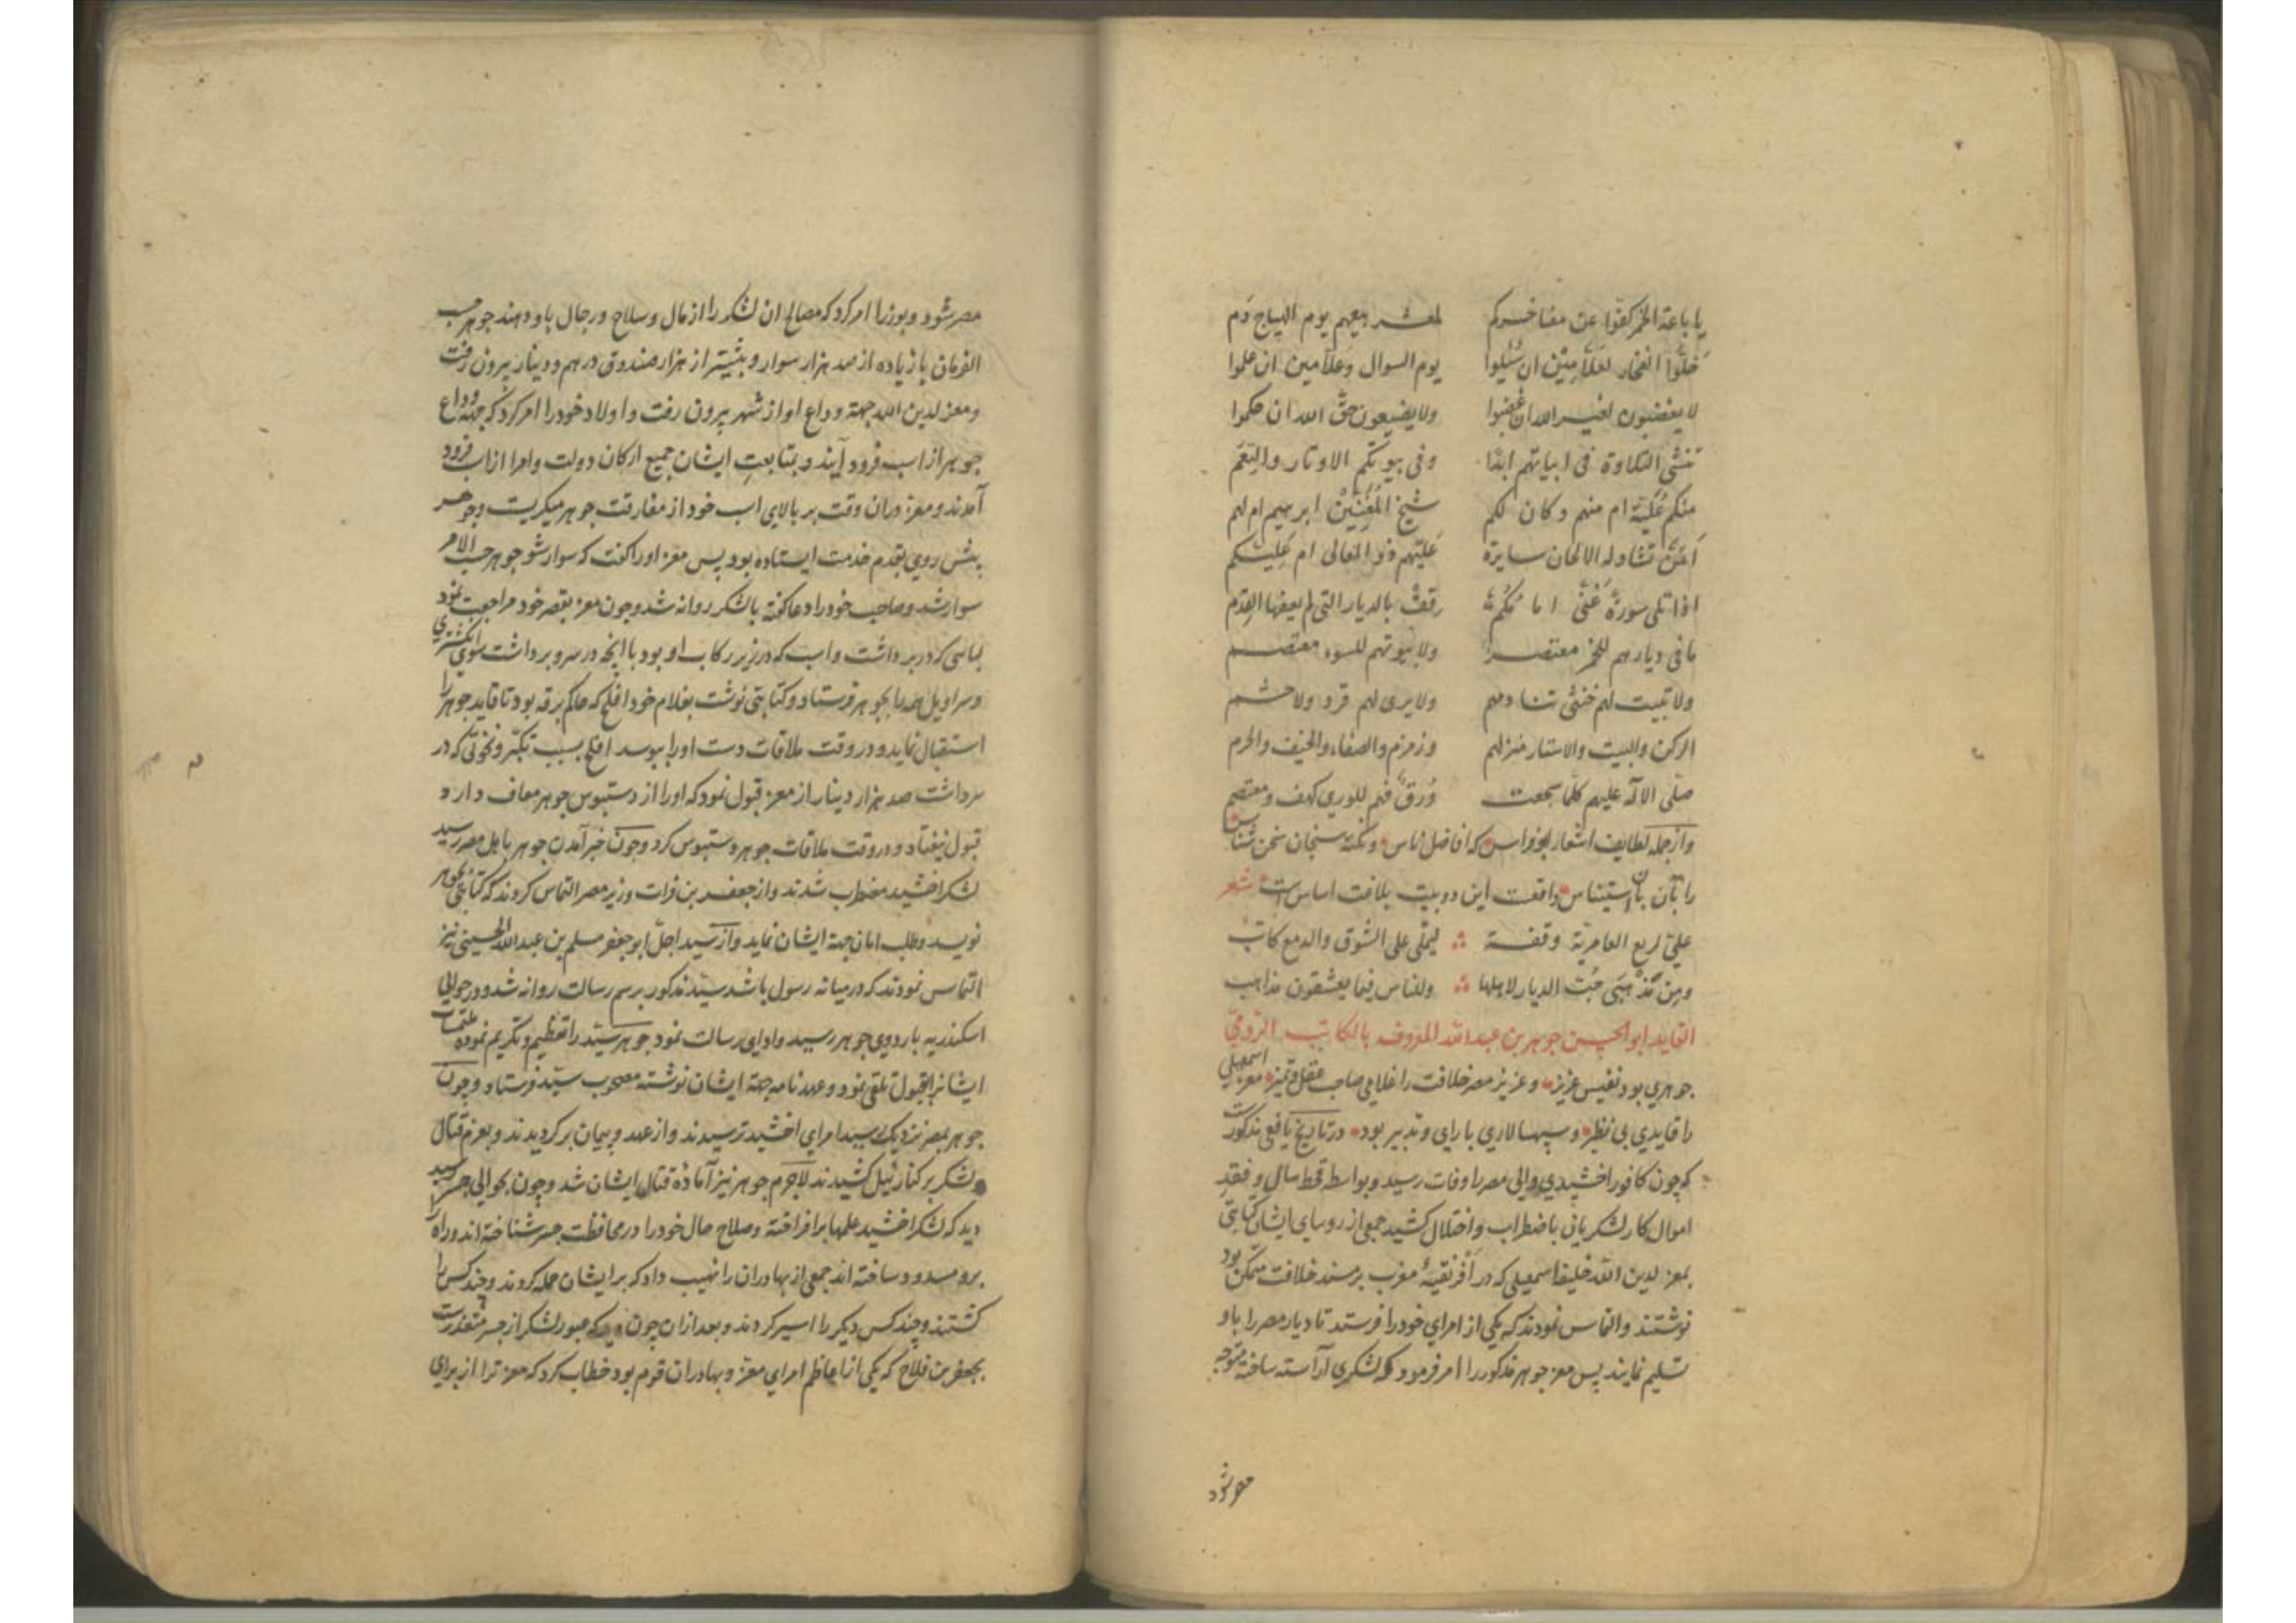 یا باعة الخمر کفوا عن مفاخرکم لمعشر بیعهم یوم الهیاج دم
خلوا الفخار لعلامین ان سئلوا یوم السوال وعلامین ان علموا
لا یغضبون لغیر الله ان غضبوا ولا یضیعون حق الله ان حکموا
تنشی التلاوة فی ابیاتهم ابدا وفی بیوتکم الاوتار والنغم
منکم علیة ام منهم وکان لکم شیخ المغنین ابرهیم ام لهم
ام من تشاد له الالحان سایرة علیهم ذو المعالی ام علیکم
اذا تلی سورة غنی امامکم قف بالدیار التی لم یعفها القدم
ما فی دیارهم للخمر معتصر ولا بیوتهم للسوء معتصم
ولا تبیت لهم خنثی تنادمهم ولا یری لهم قرد ولا حشم
الرکن والبیت والاستار منزلهم وزمزم والصفاء والخیف والحرم
صلی الاله علیهم کلما سجعت ورق فهم للوری کهف ومعتصم
وازجمله لطایف اشعار ابوفراس که افاضل ناس ونکته سنجان سخن شناس
را بآن استیناس واقعست این دو بیت بلاغت اساس است شعر
علی لربع العامریة وقفة لیملی علی الشوق والدمع کاتب
ومن مذهبی حب الدیار لاهلها وللناس فیما یعشقون مذاهب
القاید ابوالحسن جوهر بن عبدالله المعروف بالکاتب الرومی
جوهری بود نفیس عزیز وعزیز مصر خلافت را غلامی صاحب عقل وتمیز معز اسمعیلی
را قایدی بی نظیر وسپهسالاری با رای وتدبیر بود در تاریخ یافعی مذکورست
که چون کافور اخشیدی والی مصر را وفات رسید وبواسطه قحط سال وفقد
اموال کار لشکریانی باضطراب واختلال کشید جمعی از روسای ایشان کتابتی
بمعز لدین الله خلیفه اسمعیلی که در افریقیه مغرب بر مسند خلافت متمکن بود
نوشتند والتماس نمودند که یکی از امرای خود را فرستد تا دیار مصر را باو
تسلیم نمایند پس معز جوهر مذکور را امر فرمود که لشکری آراسته ساخته متوجه
مصر شود
مصر شود وبوزرا امر کرد که مصالح ان لشکر را از مال وسلاح ورجال باو دهند جوهر حسب
الفرمان با زیاده از صد هزار سوار وبیشتر از هزار صندوق درهم ودینار بیرون رفت
ومعز لدین الله جهة وداع او از شهر بیرون رفت واولاد خود را امر کرد که جهة وداع
جوهر از اسب فرود آیند وبمتابعت ایشان جمیع ارکان دولت وامرا از اسب فرود
آمدند ومعز دران وقت بر بالای اسب خود از مفارقت جوهر میکریست وجوهر
پیش روی بقدم خدمت ایستاده بود پس معز اورا کفت که سوار شو جوهر حسب الامر
سوار شد وصاحب خود را دعا کفته با لشکر روانه شد وچون معز بقصر خود مراجعت نمود
لباسی که در بر داشت واسب که در زیر رکاب او بود با انچه در سر وبر داشت سوی انکشتری
وسراویل همه را بجوهر فرستاد وکتابتی نوشت بغلام خود افلح که حاکم برقه بود تا قاید جوهر را
استقبال نماید ودر وقت ملاقات دست اورا ببوسد افلح بسبب تکبر ونخوتی که در
سر داشت صد هزار دینار از معز قبول نمود که اورا از دستبوس جوهر معاف دارد
قبول نیفتاد ودر وقت ملاقات جوهر دستبوس کرد وچون خبر آمدن جوهر باهل مصر رسید
لشکر اخشید مضطرب شدند واز جعفر بن فرات وزیر مصر التماس کردند که کتابتی بجوهر
نویسد وطلب امان جهة ایشان نماید واز سید اجل ابوجعفر مسلم بن عبدالله الحسینی نیز
التماس نمودند که در میانه رسول باشد سید مذکور برسم رسالت روانه شد ودر حوالی
اسکندریه باردوی جوهر رسید وادای رسالت نمود جوهر سید را تعظیم وتکریم نموده ملتمسات
ایشانرا بقبول تلقی نمود وعهدنامه جهة ایشان نوشته مصحوب سید فرستاد وچون
جوهر بمصر نزدیک رسید امرای اخشید ترسیدند واز عهد وپیمان برکردیدند وبعزم قتال
لشکر بر کنار نیل کشیدند لاجرم جوهر نیز آماده قتال ایشان شد وچون بحوالی جسر رسید
دید که لشکر اخشید علمها برافراخته وصلاح حال خود را در محافظت جسر شناخته اند وراه را
برو مسدود ساخته اند جمعی از بهادران را نهیب داد که بر ایشان حمله کردند وچند کس را
کشتند وچند کس دیکر را اسیر کردند وبعد ازان چون دید که عبور لشکر از جسر متعذرست
بجعفر بن فلاح که یکی از اعاظم امرای معز وبهادران قوم بود خطاب کرد که معز ترا از برای